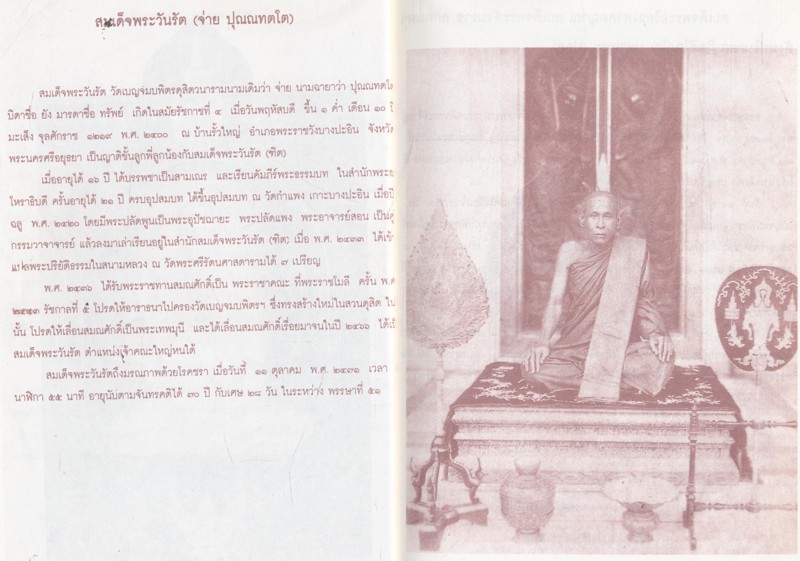 สมเด็จพระวันรัต (จ่าย ปุณณทตโต)
สมเด็จพระวันรัต วัดเบญจมบพิตรดุสิตวนารามนามเดิมว่า จ่าย นามฉายาว่า ปุณณทตโต
บิดาชื่อ ยัง มารดาชื่อ ทรัพย์ เกิดในสมัยรัชกาลที่ ๔ เมื่อวันพฤหัสบดี ขึ้น ๑ ค่ำ เดือน ๑๐ ปี
มะเส็ง จุลศักราช ๑๒๑๙ พ.ศ. ๒๔๐๐ ณ บ้านรั้วใหญ่ อำเภอพระราชวังบางปะอิน จังหวัด
พระนครศรีอยุธยา เป็นญาติชั้นลูกพี่ลูกน้องกับสมเด็จพระวันรัต (ฑิต)
เมื่ออายุได้ ๑๖ ปี ได้บรรพชาเป็นสามเณร และเรียนคัมภีร์พระธรรมบท ในสำนักพระย
โหราธิบดี ครั้นอายุได้ ๒๑ ปี ครบอุปสมบท ได้ขึ้นอุปสมบท ณ วัดกำแพง เกาะบางปะอิน เมื่อปี
ฉลู พ.ศ. ๒๔๒๐ โดยมีพระปลัดพูนเป็นพระอุปัชฌายะ พระปลัดแพง พระอาจารย์สอน เป็นคู่
กรรมวาจาจารย์ แล้วลงมาเล่าเรียนอยู่ในสำนักสมเด็จพระวันรัต (ฑิต) เมื่อ พ.ศ. ๒๔๓๓ ได้เข้า
แปลพระปริยัติธรรมในสนามหลวง ณ วัดพระศรีรัตนศาสดารามได้ ๗ เปรียญ
พ.ศ. ๒๔๓๖ ได้รับพระราชทานสมณศักดิ์เป็น พระราชาคณะ ที่พระราชโมลี ครั้น พ.ศ
๒๔๔๓ รัชกาลที่ ๕ โปรดให้อาราธนาไปครองวัดเบญจมบพิตรฯ ซึ่งทรงสร้างใหม่ในสวนดุสิต ใน
นั้น โปรดให้เลื่อนสมณศักดิ์เป็นพระเทพมุนี และได้เลื่อนสมณศักดิ์เรื่อยมาจนในปี ๒๔๖๖ ได้เป็
สมเด็จพระวันรัต ตำแหน่งเจ้าคณะใหญ่หนใต้
สมเด็จพระวันรัตถึงมรณภาพด้วยโรคชรา เมื่อวันที่ ๑๑ ตุลาคม พ.ศ. ๒๔๗๑ เวลา
นาฬิกา ๕๕ นาที อายุนับตามจันทรคติได้ ๗๐ ปี กับเศษ ๒๘ วัน ในระหว่าง พรรษาที่ ๕๑